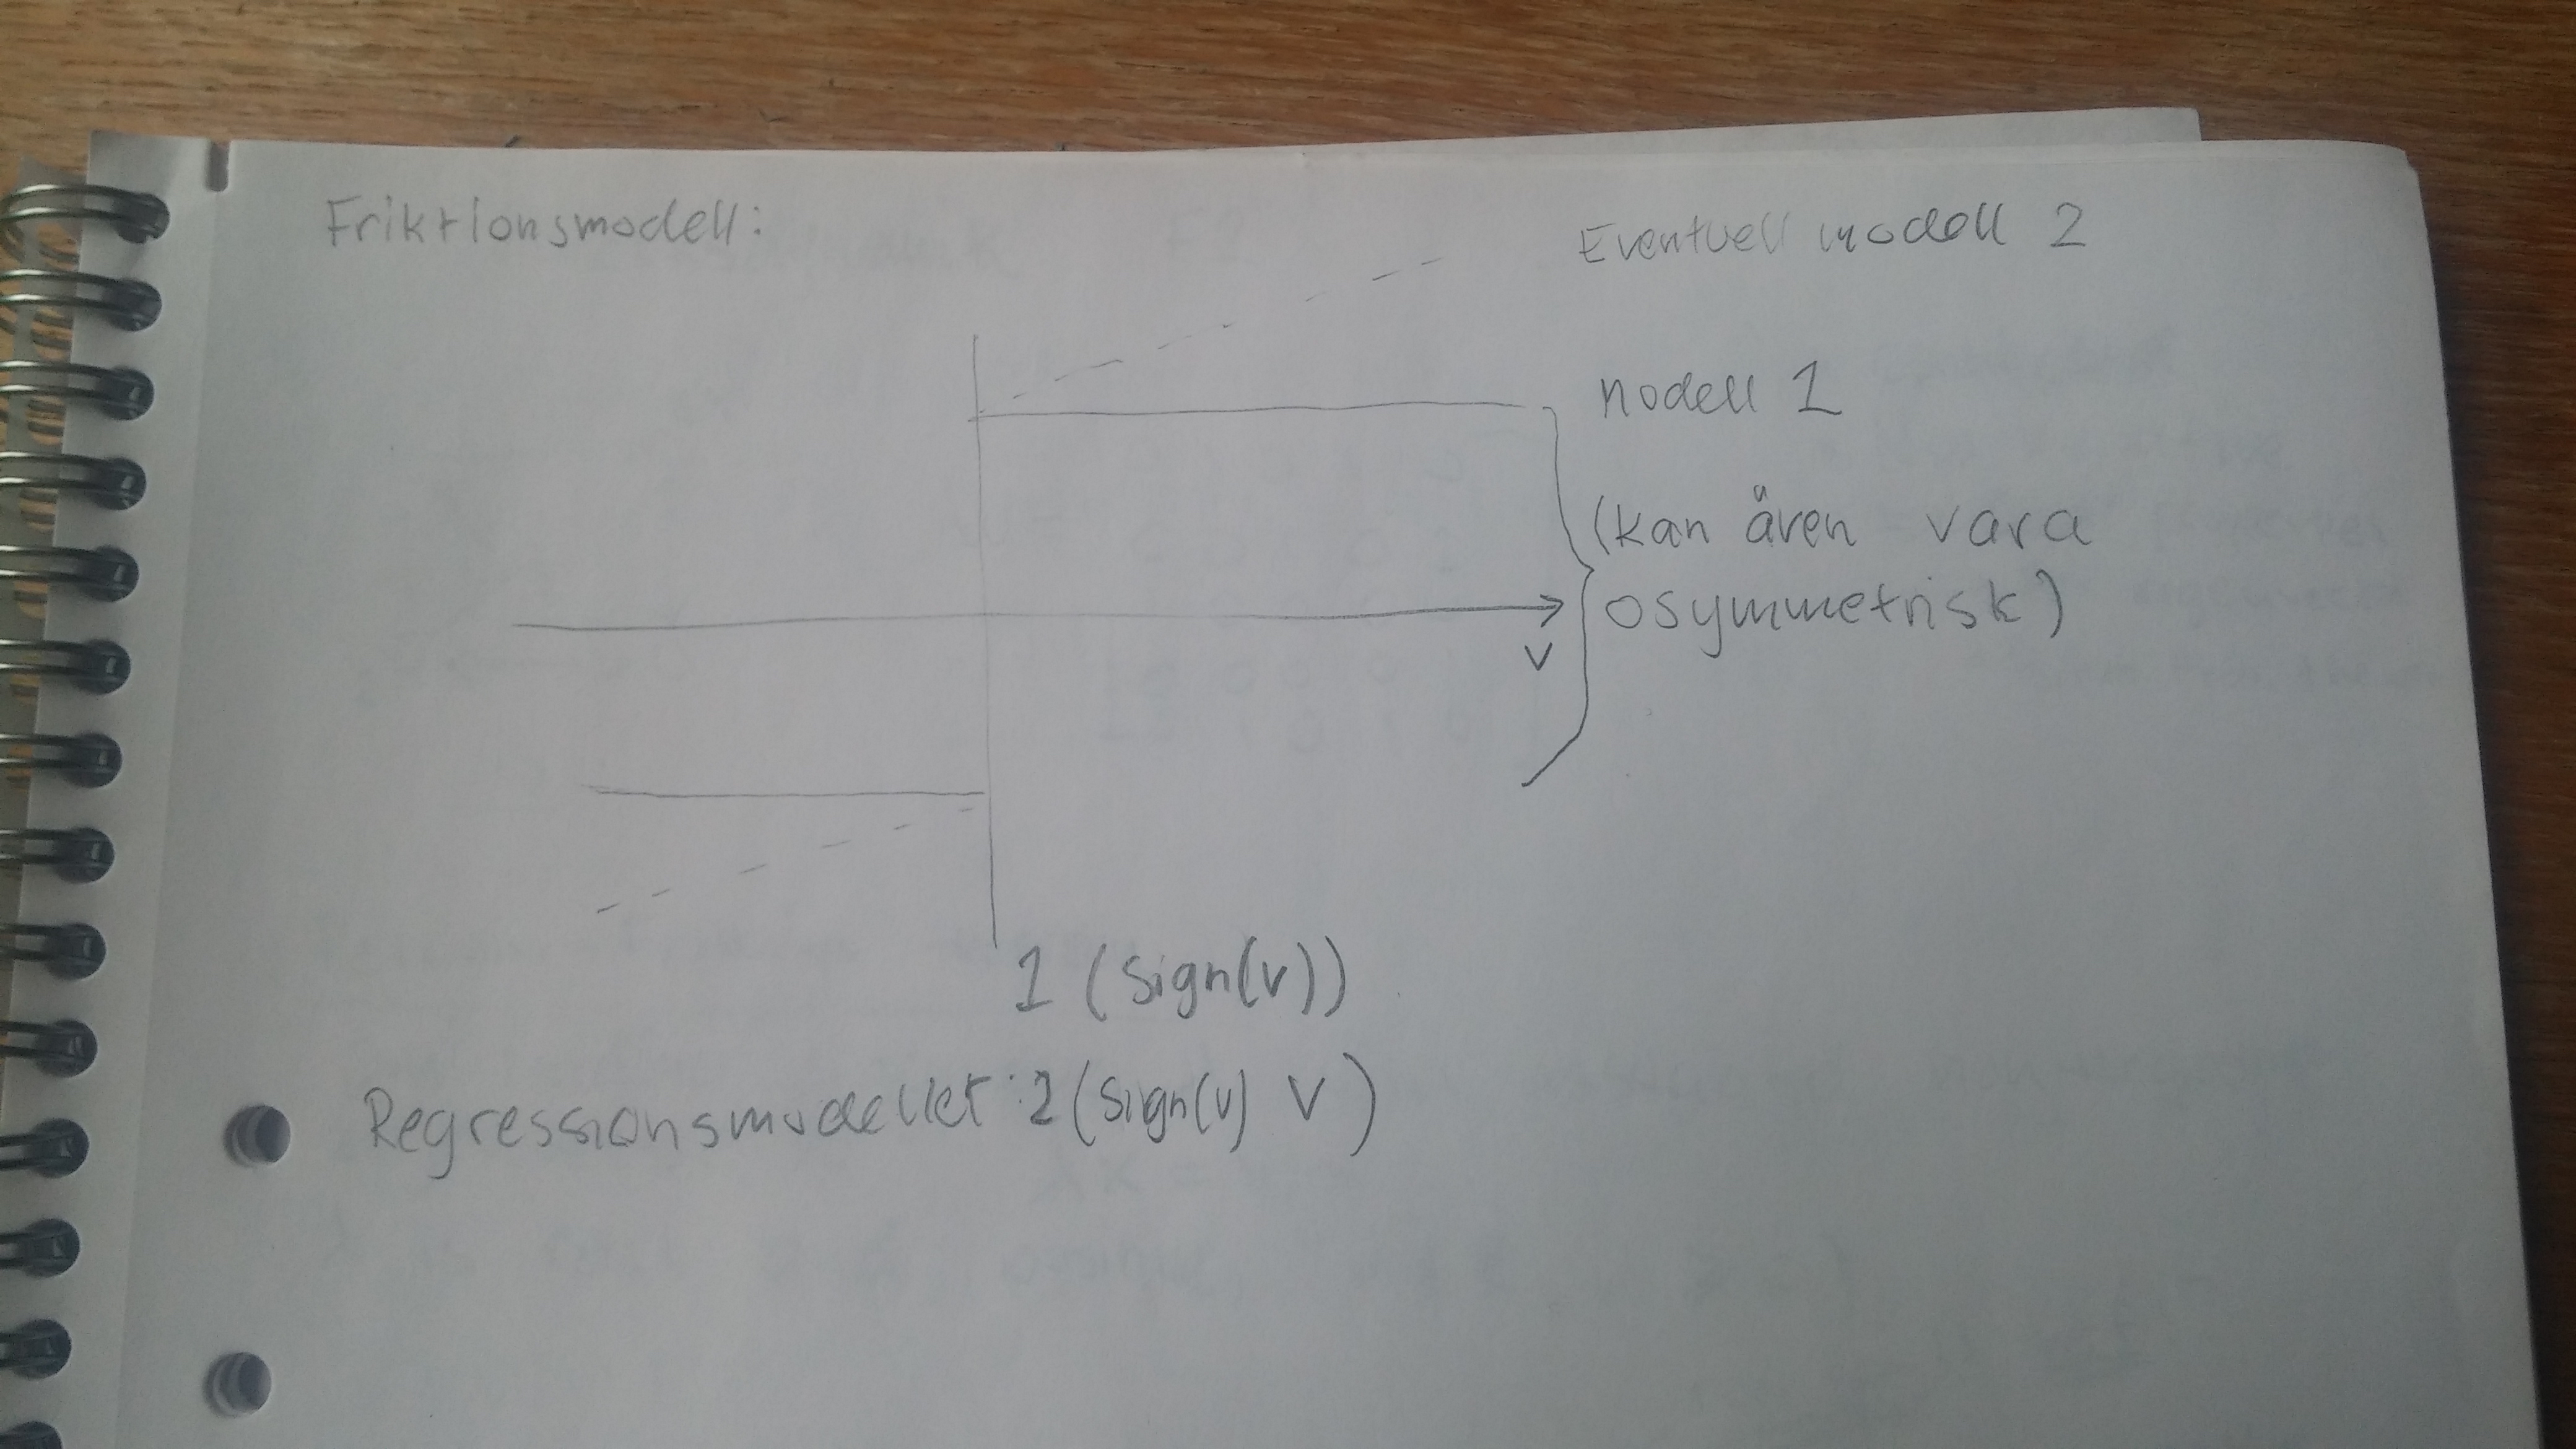 Friktionsmodell:
Eventuell modell 2
modell 1
(kan även vara
osymmetrisk)
v
1 (sign(v))
Regressionsmodellet: 2 (sign(v) v)